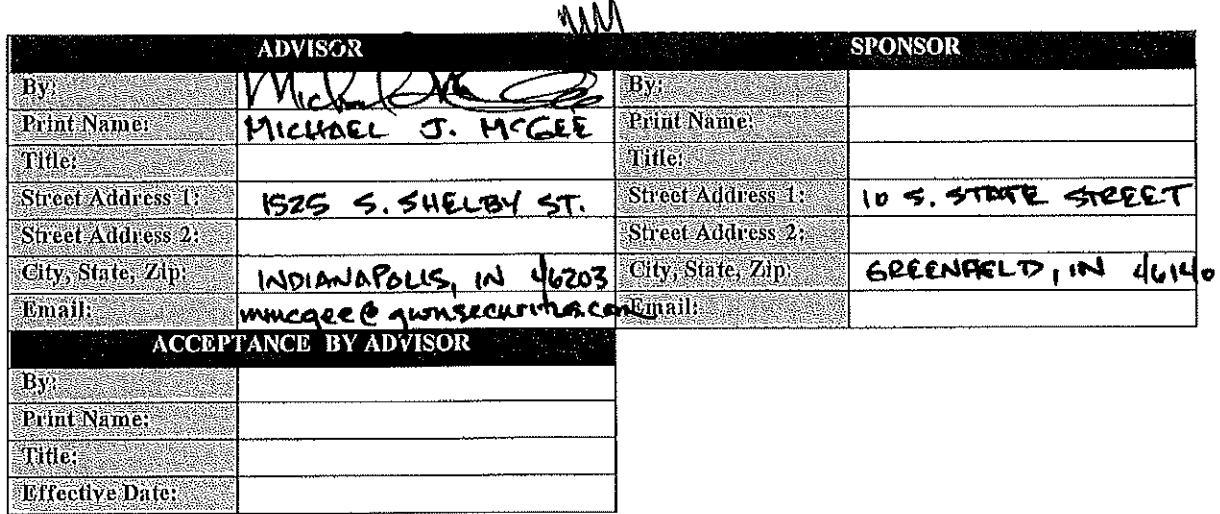 MM
ADVISOR SPONSOR
By: By:
Print Name: MICHAEL J. McGEE Print Name:
Title: Title:
Street Address 1: 1525 S. SHELBY ST. Street Address 1: 10 S. STATE STREET
Street Address 2: Street Address 2:
City, State, Zip: INDIANAPOLIS, IN 46203 City, State, Zip: GREENFIELD, IN 46140
Email: mmcgee@gwnsecurities.com Email:
ACCEPTANCE BY ADVISOR
By:
Print Name:
Title:
Effective Date: